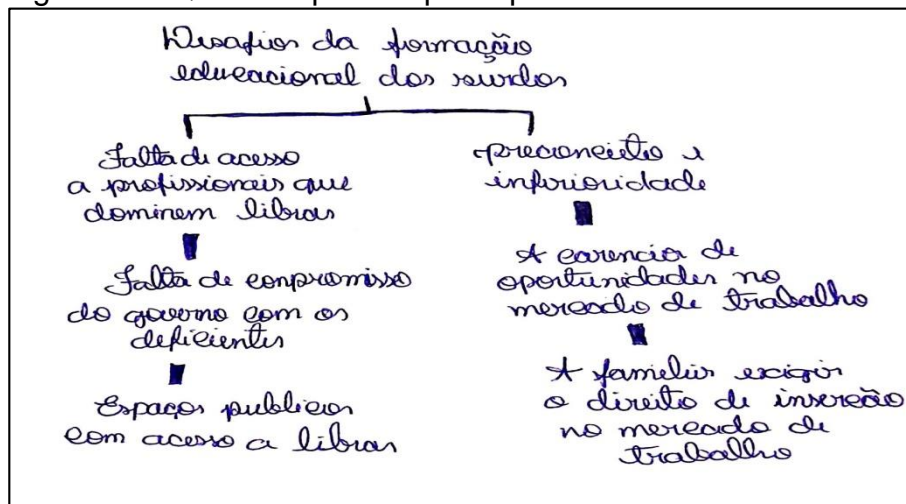 Desafios da formação
educacional dos surdos
Falta de acesso
a profissionais que
dominem libras
Falta de conpromisso
do governo com os
deficientes
Espaços publicos
com acesso a libras
preconceito e
inferioridade
A carencia de
oportunidades no
mercado de trabalho
A familia exigir
o direito de inserção
no mercado de
trabalho